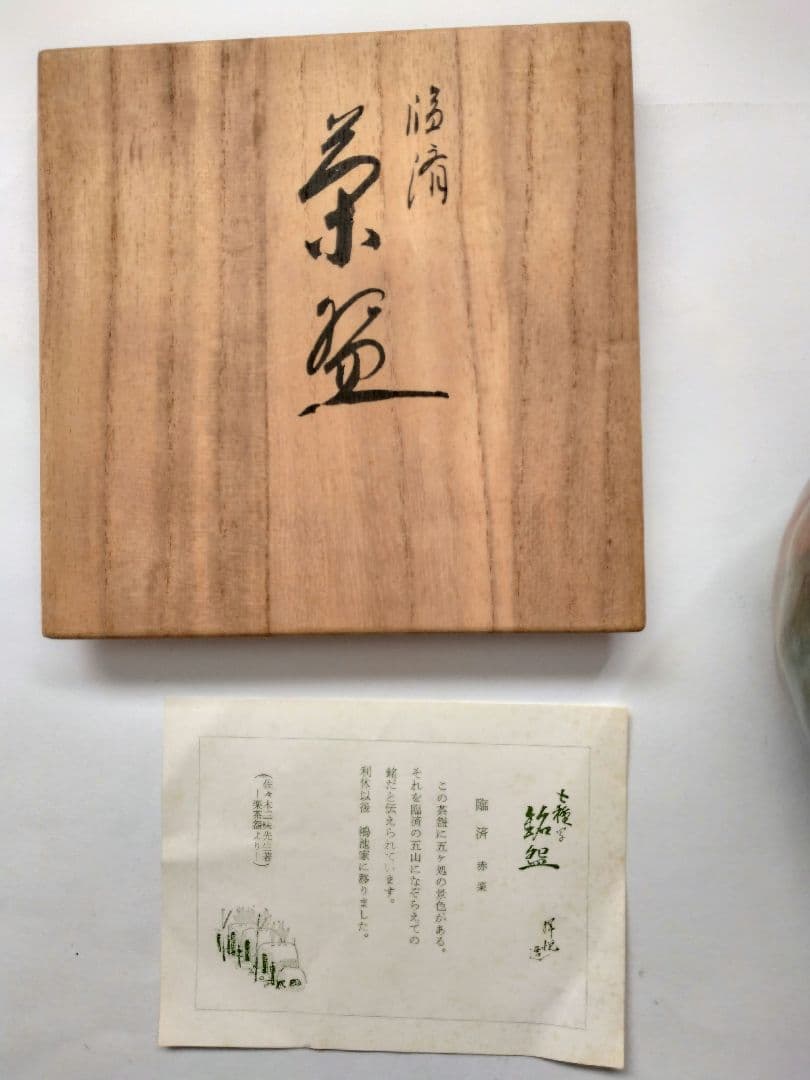 臨済
茶盌
七種写
銘盌
臨済 赤楽
この茶盌に五ヶ処の景色がある。
それを臨済の五山になぞらえての
銘だと伝えられています。
利休以後 鴻池家に移りました。
(佐々木三味先生著
ー楽茶盌よりー)